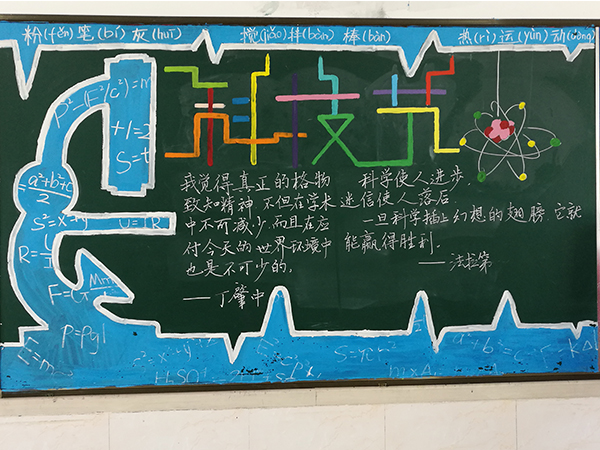 粉(fěn)笔(bǐ)灰(huī)
搅(jiǎo)拌(bàn)棒(bàn)
热(rì)运(yùn)动(dòng)
科技节
P²=(F²/c²)=m
+1=2
S=t
a²+b²+c
2
S²=x²+y²
R=
U=IR
F=G
P=ρgl
E=m
我觉得真正的格物
致知精神,不但在学术
中不可减少,而且在应
付今天的世界环境中
也是不可少的。
——丁肇中
科学使人进步,
迷信使人落后,
一旦科学插上幻想的翅膀,它就
能赢得胜利。
——法拉第
a²+b²=c